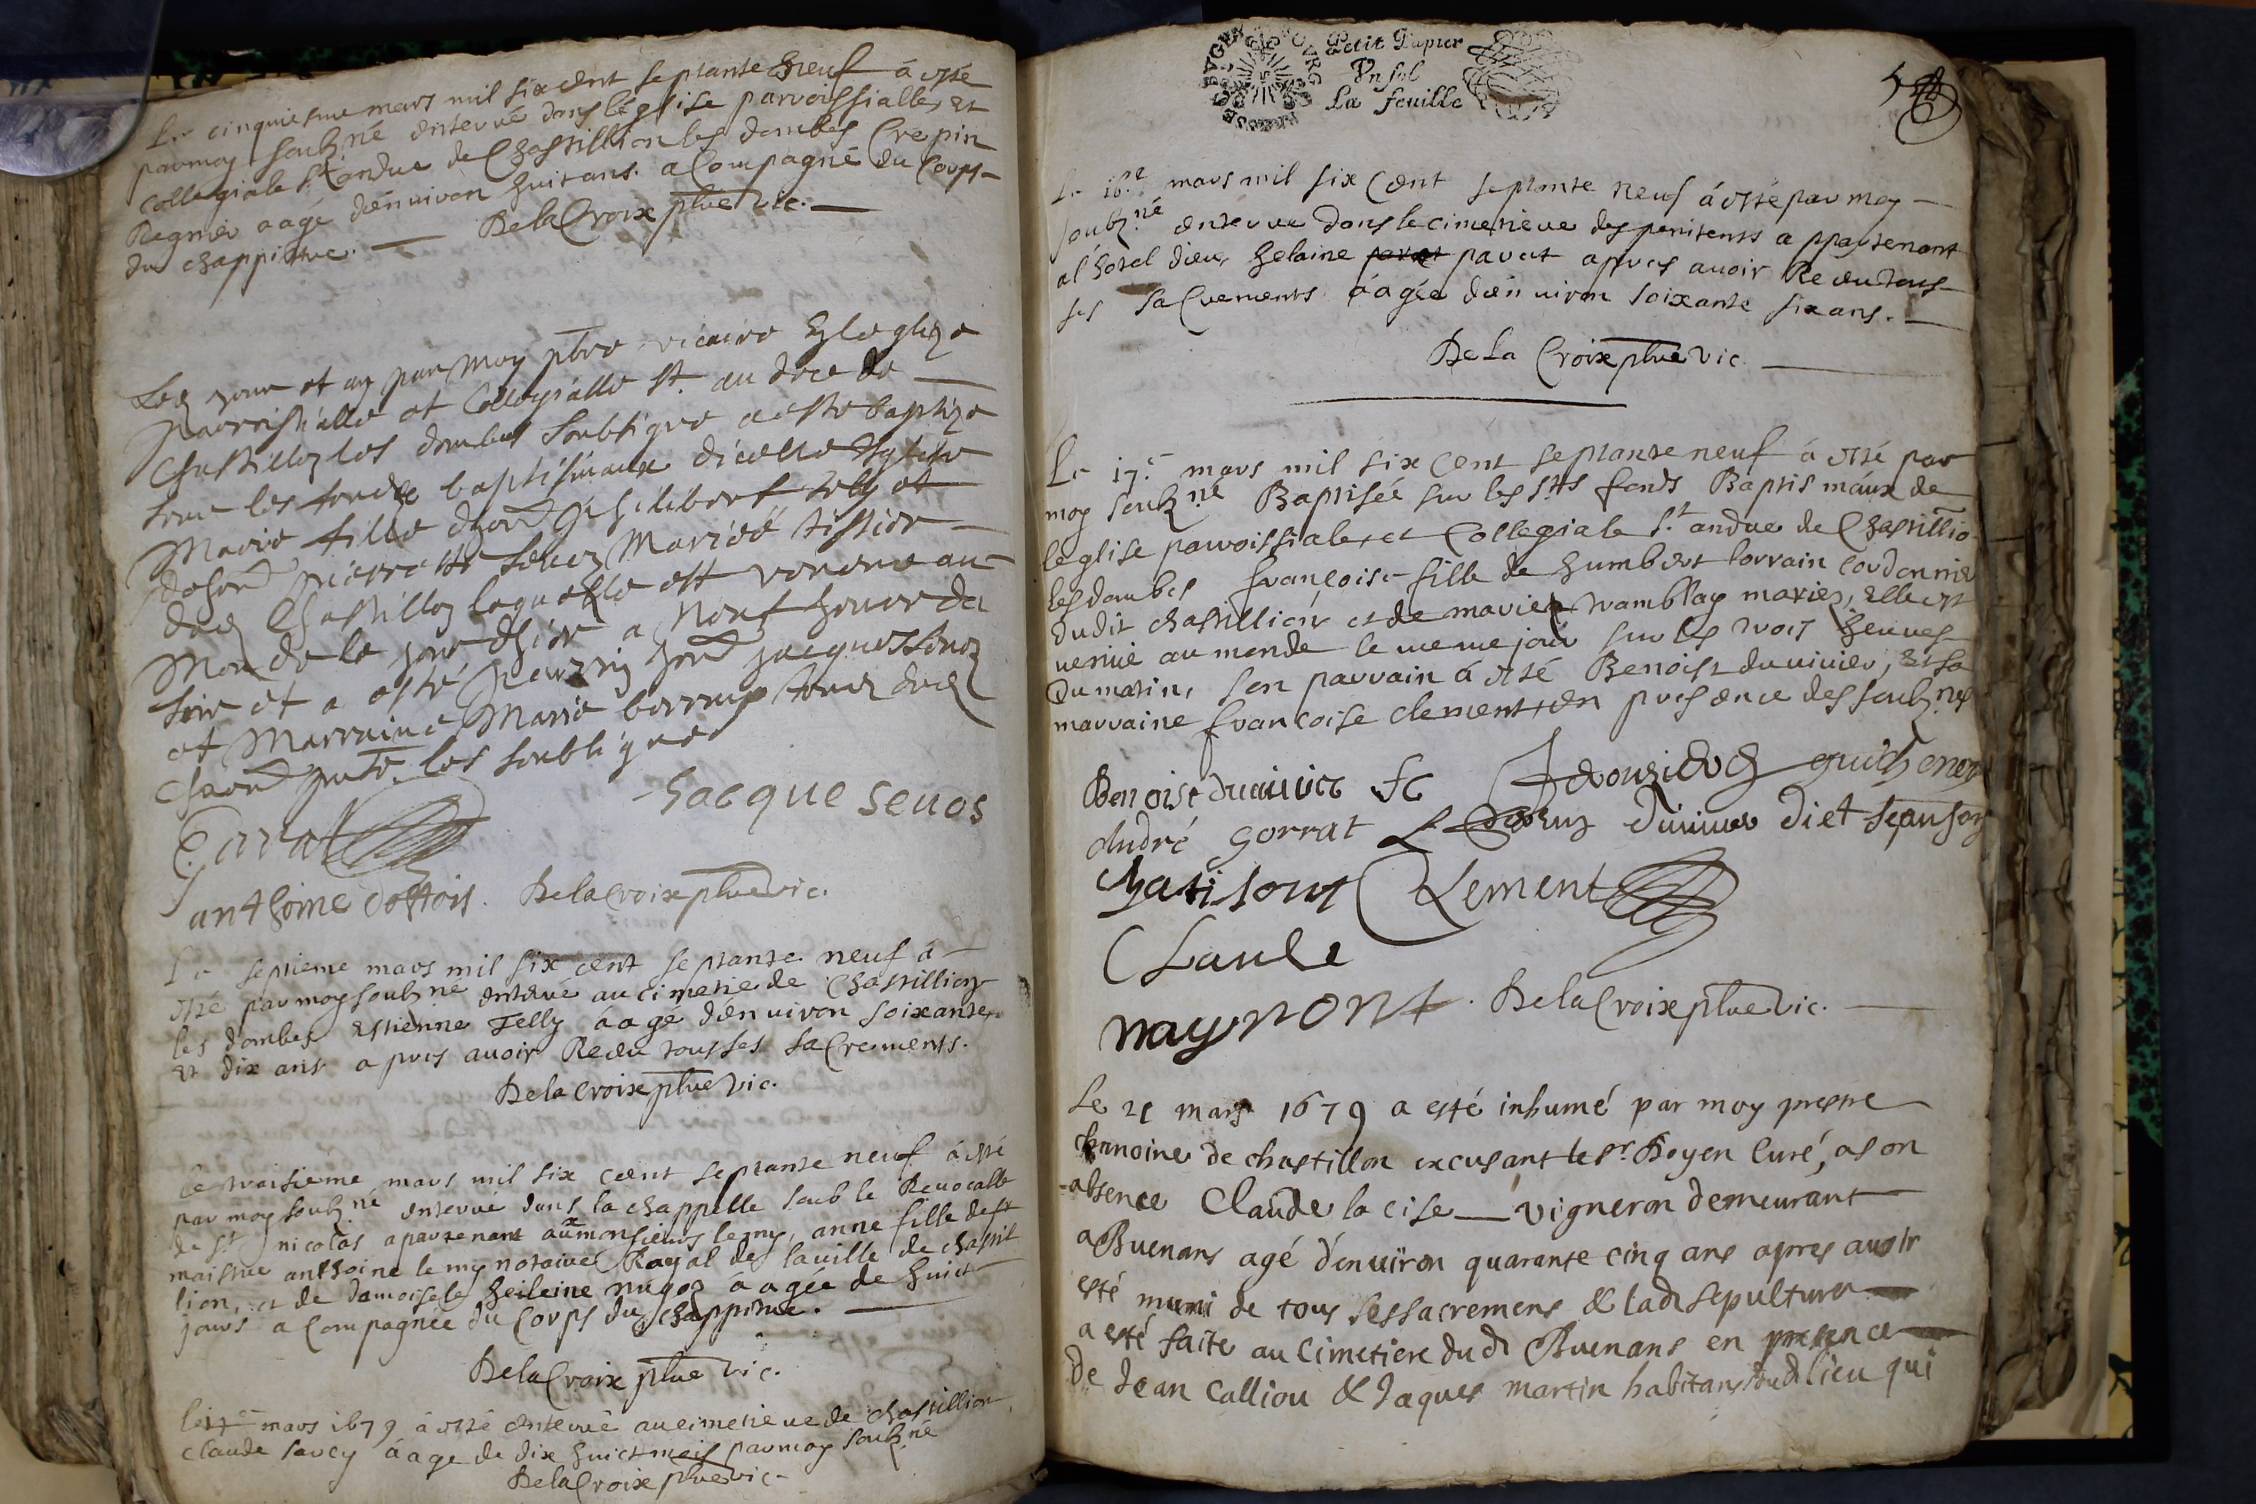 Le cinquiesme mars mil six cent septante neuf à esté
par moy soubz.né enterré dans l'église parroissialle, et
Collegiale St. andre de Chastillion les dombes Crepin
Regnier aagé d'environ huit ans. a Compagné du Corps
du chappittre. De la Croix pbre vic.
Led. jour et an par moy pbre vicaire En leglize
Parroissialle et Collegialle St. andre de
Chastillon les dombes soubsigné a esté baptizé
sur les fondz baptismaux dicelle Eglise
Marie fille d'hon. Philibert telly et
de hon. Pierrette sevoz Mariés
dud. Chastillon laquelle est venue au
Monde le jour d'hier a neuf heures du
soir et a esté parrin hon. Jacques sevoz
et Marraine Marie
les soubsignes
Jacque seuos
Garrat
anthoine De la Croix pbre vic.
Le septieme mars mil six cent septante neuf à
esté par moy soubz.né enterré au cimetie de Chastillion
les dombes Estienne Telly àagé d'environ soixante
et dix ans apres avoir Receu tous ses sacrements.
De la croix pbre vic.
Le troisieme mars mil six cent septante neuf à esté
par moy soubz.né enterré dans la chappelle soub le Vocable
de St nicolas apartenant aux monsieurs lemy, anne fille de
maistre anthoine lemy notaire Royal de la ville de chastil
lion, et de damoiselle heileine aagée de huict
jours a Compagnée du Corps du chappittre.
De la Croix pbre vic.
mars 1679 à esté enterré au cimetiere de Chastillion
Claude savey àage de dix huict mois par moy soubz.né
De la Croix pbre vic.
Petit Papier
Un sol
La feuille
5
Le 16.e mars mil six Cent septante neuf à esté par moy
soubz.né enterré dans le cimetiere des penitents appartenant
al'hotel dieu, helaine pavet apres avoir Receu tous
ses sacrements àagée d'environ soixante six ans.
De La Croix pbre vic.
Le 17.e mars mil six Cent septante neuf à esté par
moy soubz.né Baptisée sur les s.ts fonds Baptismaux de
l'eglise parroissiale, et Collegiale s.t andre de Chastillio
les dombes françoise fille de humbert lorrain cordonnier
dudit chastillion et de marie tramblay mariez, elle est
venue au monde le meme jour sur les trois heures
du matin, son parrain à esté Benoist duvivier, et sa
marraine françoise clement, en presence des soubz.nes
Benoist duuiuier guichenon
André gorrat duuiuier
Clement
Claude
raymont. De la Croix pbre vic.
Le 21 mars 1679 a esté inhumé par moy prestre
chanoine de chastillon excusant le sr. Doyen Curé, a son
absence Claude la cise vigneron demeurant
a Buenans agé d'enuiron quarante cinq ans apres auoir
esté muni de tous ses sacremens & lad. sepulture
a esté faite au Cimetiere dud. Buenans en presence
De Jean Calliou & Jaques martin habitans dud. lieu qui